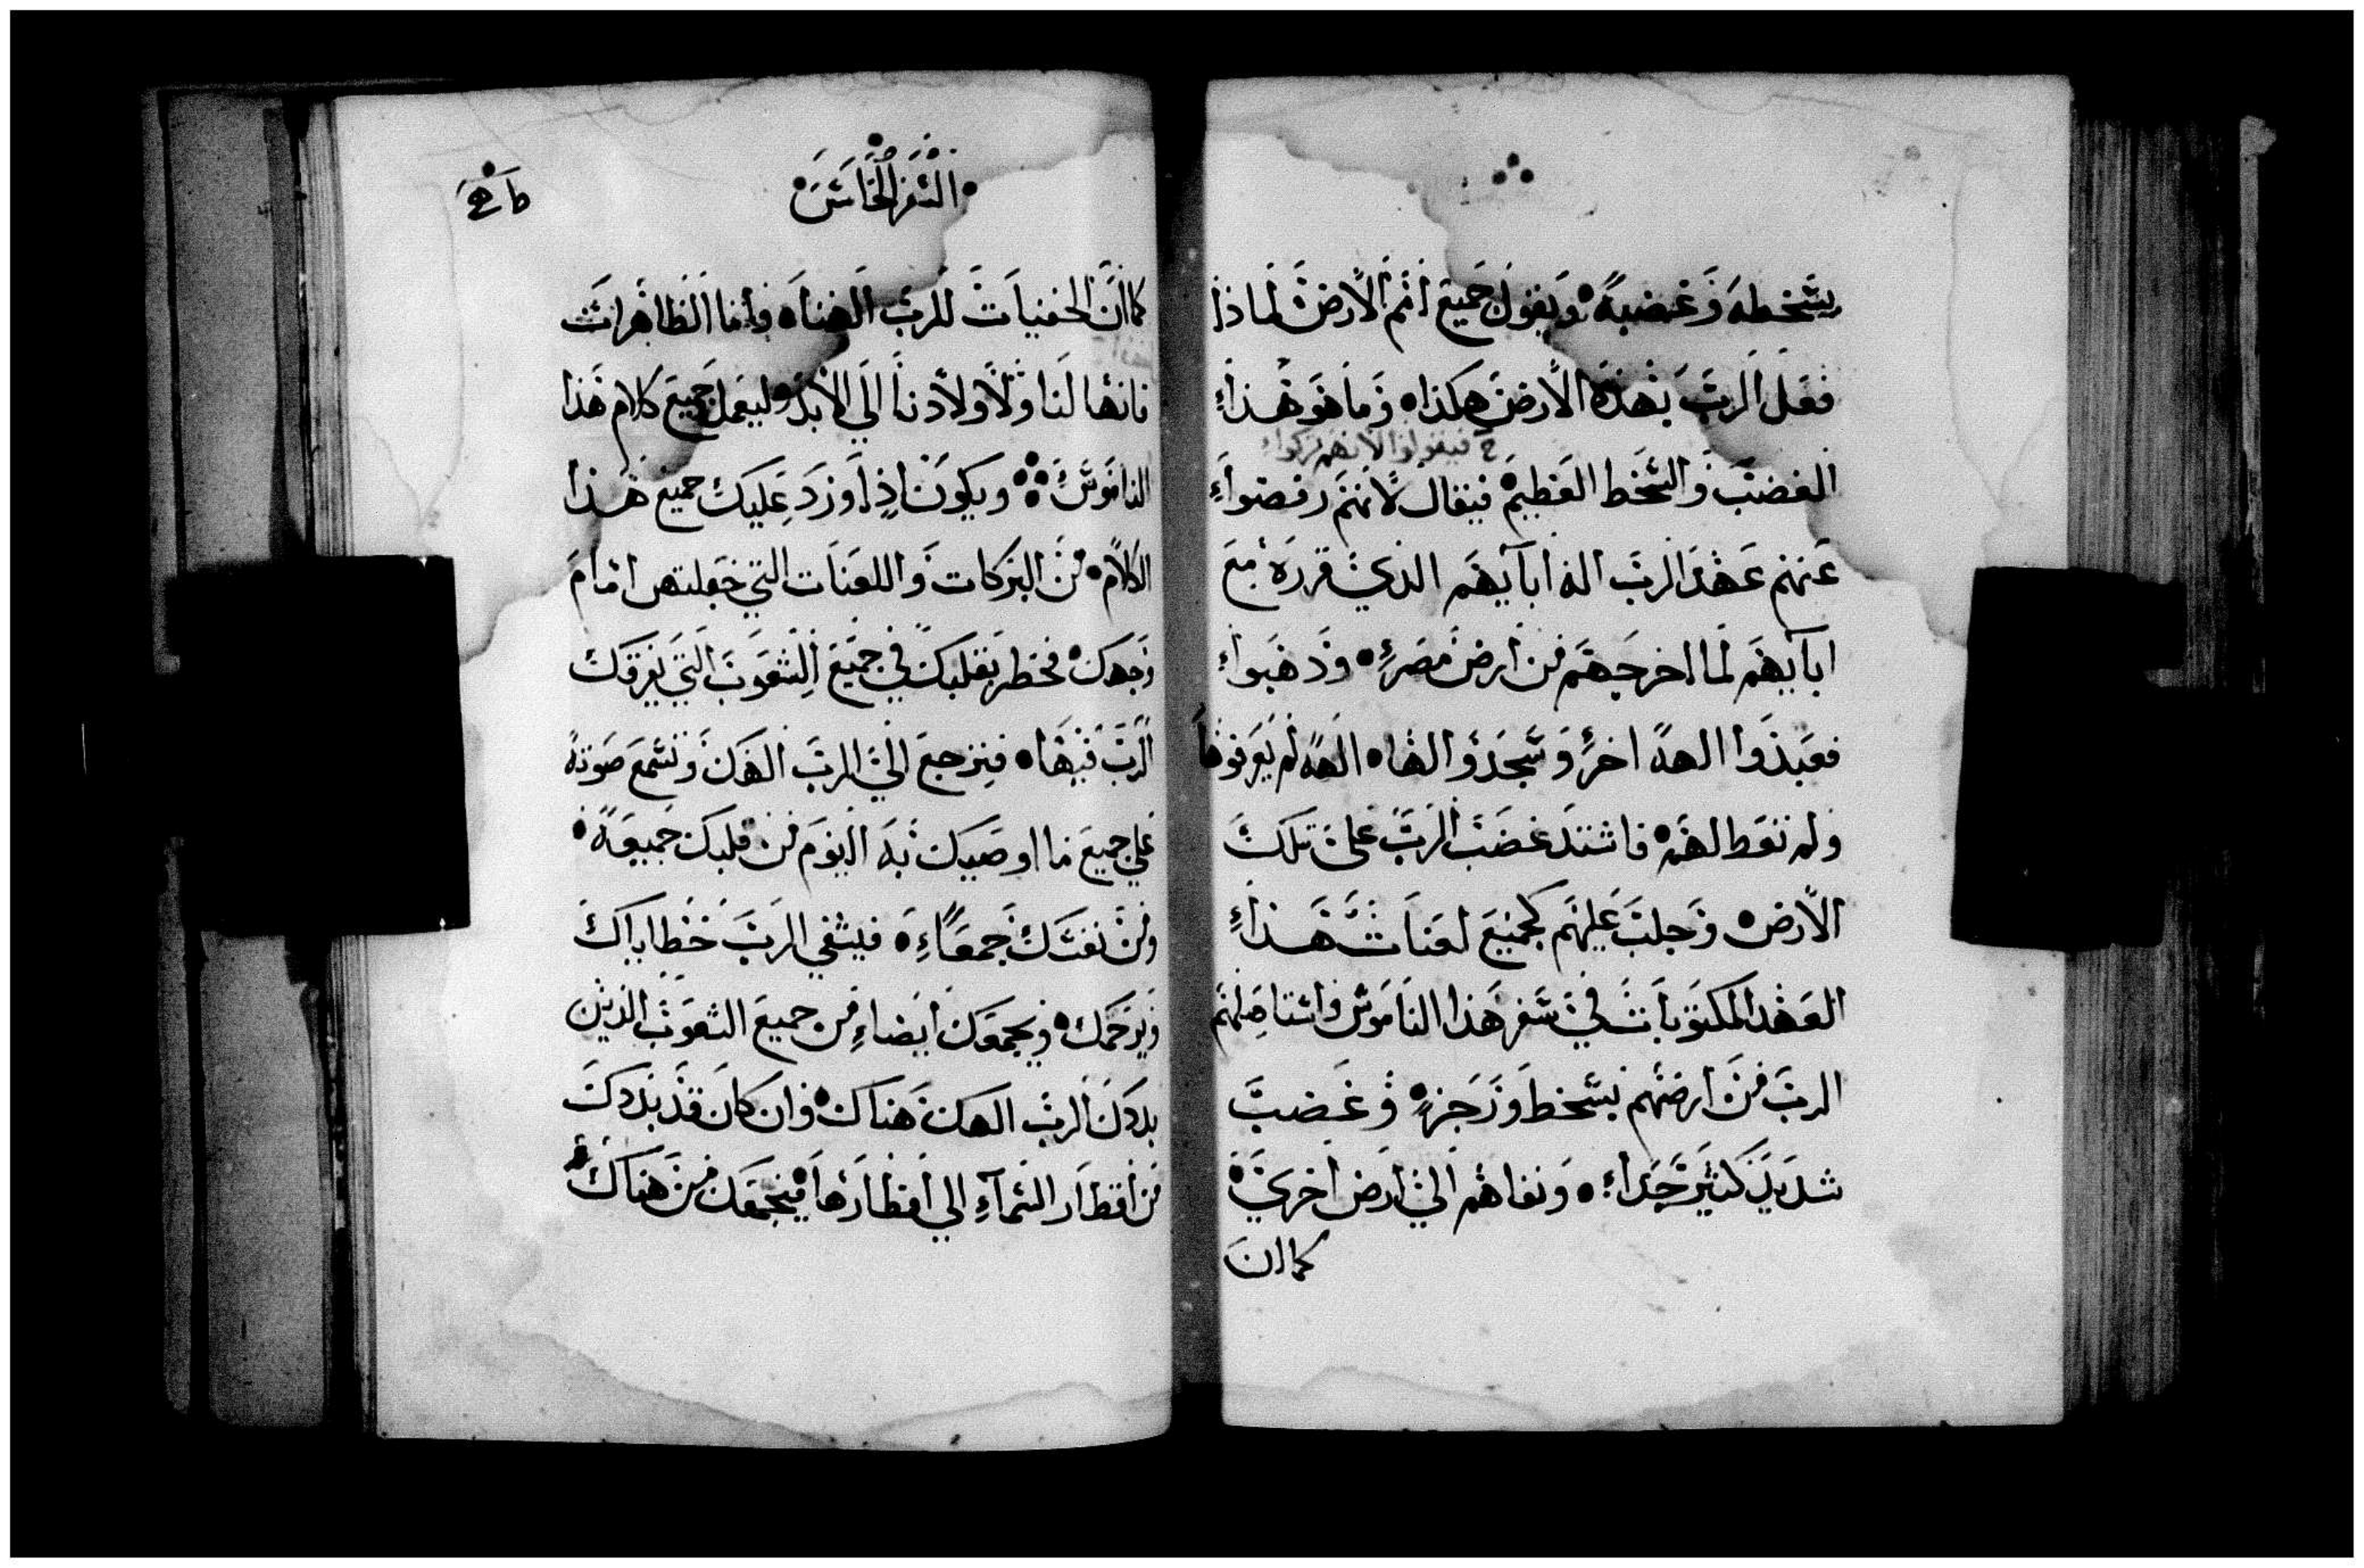 بسخطه وغضبه ويقول جميع امم الارض لماذا
فعل الرب بهذه الارض هكذا وما هو هذا
ح فيقولوا لانهم تركوا
الغضب والسخط العظيم فيقال لانهم رفضوا
عنهم عهد الرب اله ابآيهم الذي قرره مع
ابآيهم لما اخرجهم من ارض مصر وذهبوا
فعبدوا الهه اخر وسجدو الها الهه لم يعرفوها
ولم تعط لهم فاشتد غضب الرب على تلك
الارض وجلب عليهم كجميع لعنات هذا
العهد المكتوبات في سفر هذا الناموس واستاصلهم
الرب من ارضهم بسخط وزجز وغضب
شديد كثير جدا ونفاهم الي ارض اخري
كما ان
السفر الخامس
كما ان الخفيات للرب الهنا واما الظاهرات
فانها لنا ولاولادنا الي الابد وليعمل جميع كلام هذا
الناموس ويكون اذا ورد عليك جميع هذا
الكلام من البركات واللعنات التي جعلتهن امام
وجهك فخطر بقلبك في جميع الشعوب التي يفرقك
الرب فيها فترجع الي الرب الهك وتسمع صوته
علي جميع ما اوصيك به اليوم من قلبك جميعه
ومن نفسك جمعاء فيشفي الرب خطاياك
ويرحمك ويجمعك ايضا من جميع الشعوب الذين
بددك الرب الهك هناك وان كان قد بددك
من اقطار السمآء الي اقطارها فيجمعك من هناك